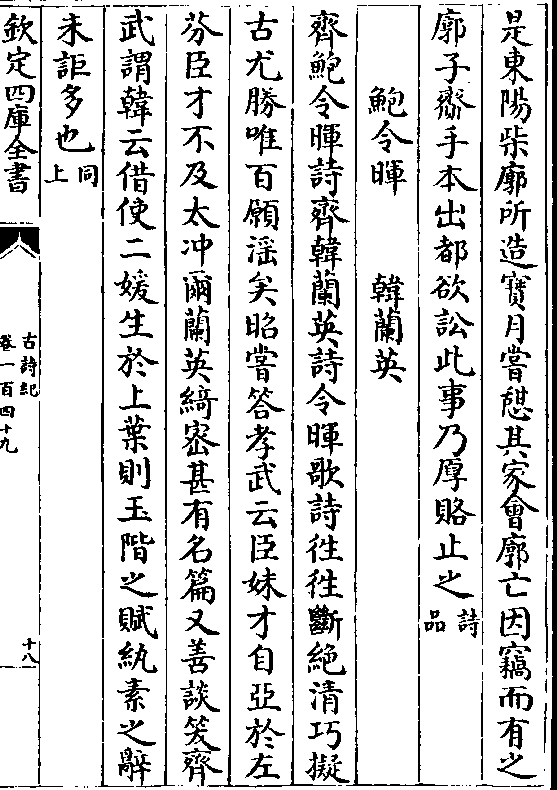 是東陽柴廓所造寳月嘗憇其家會廓亡因竊而有之
廓子齎手本出都欲訟此事乃厚賂止之詩品
鮑令暉　　韓蘭英
齊鮑令暉詩齊韓蘭英詩令暉歌詩徃徃斷絶清巧擬
古尤勝唯百願滛矣昭嘗答孝武云臣妹才自亞於左
芬臣才不及太冲爾蘭英綺宻甚有名篇又善談笑齊
武謂韓云借使二媛生於上葉則玉階之賦紈素之辭
未詎多也同上
欽定四庫全書
古詩紀
卷一百四十九
十八